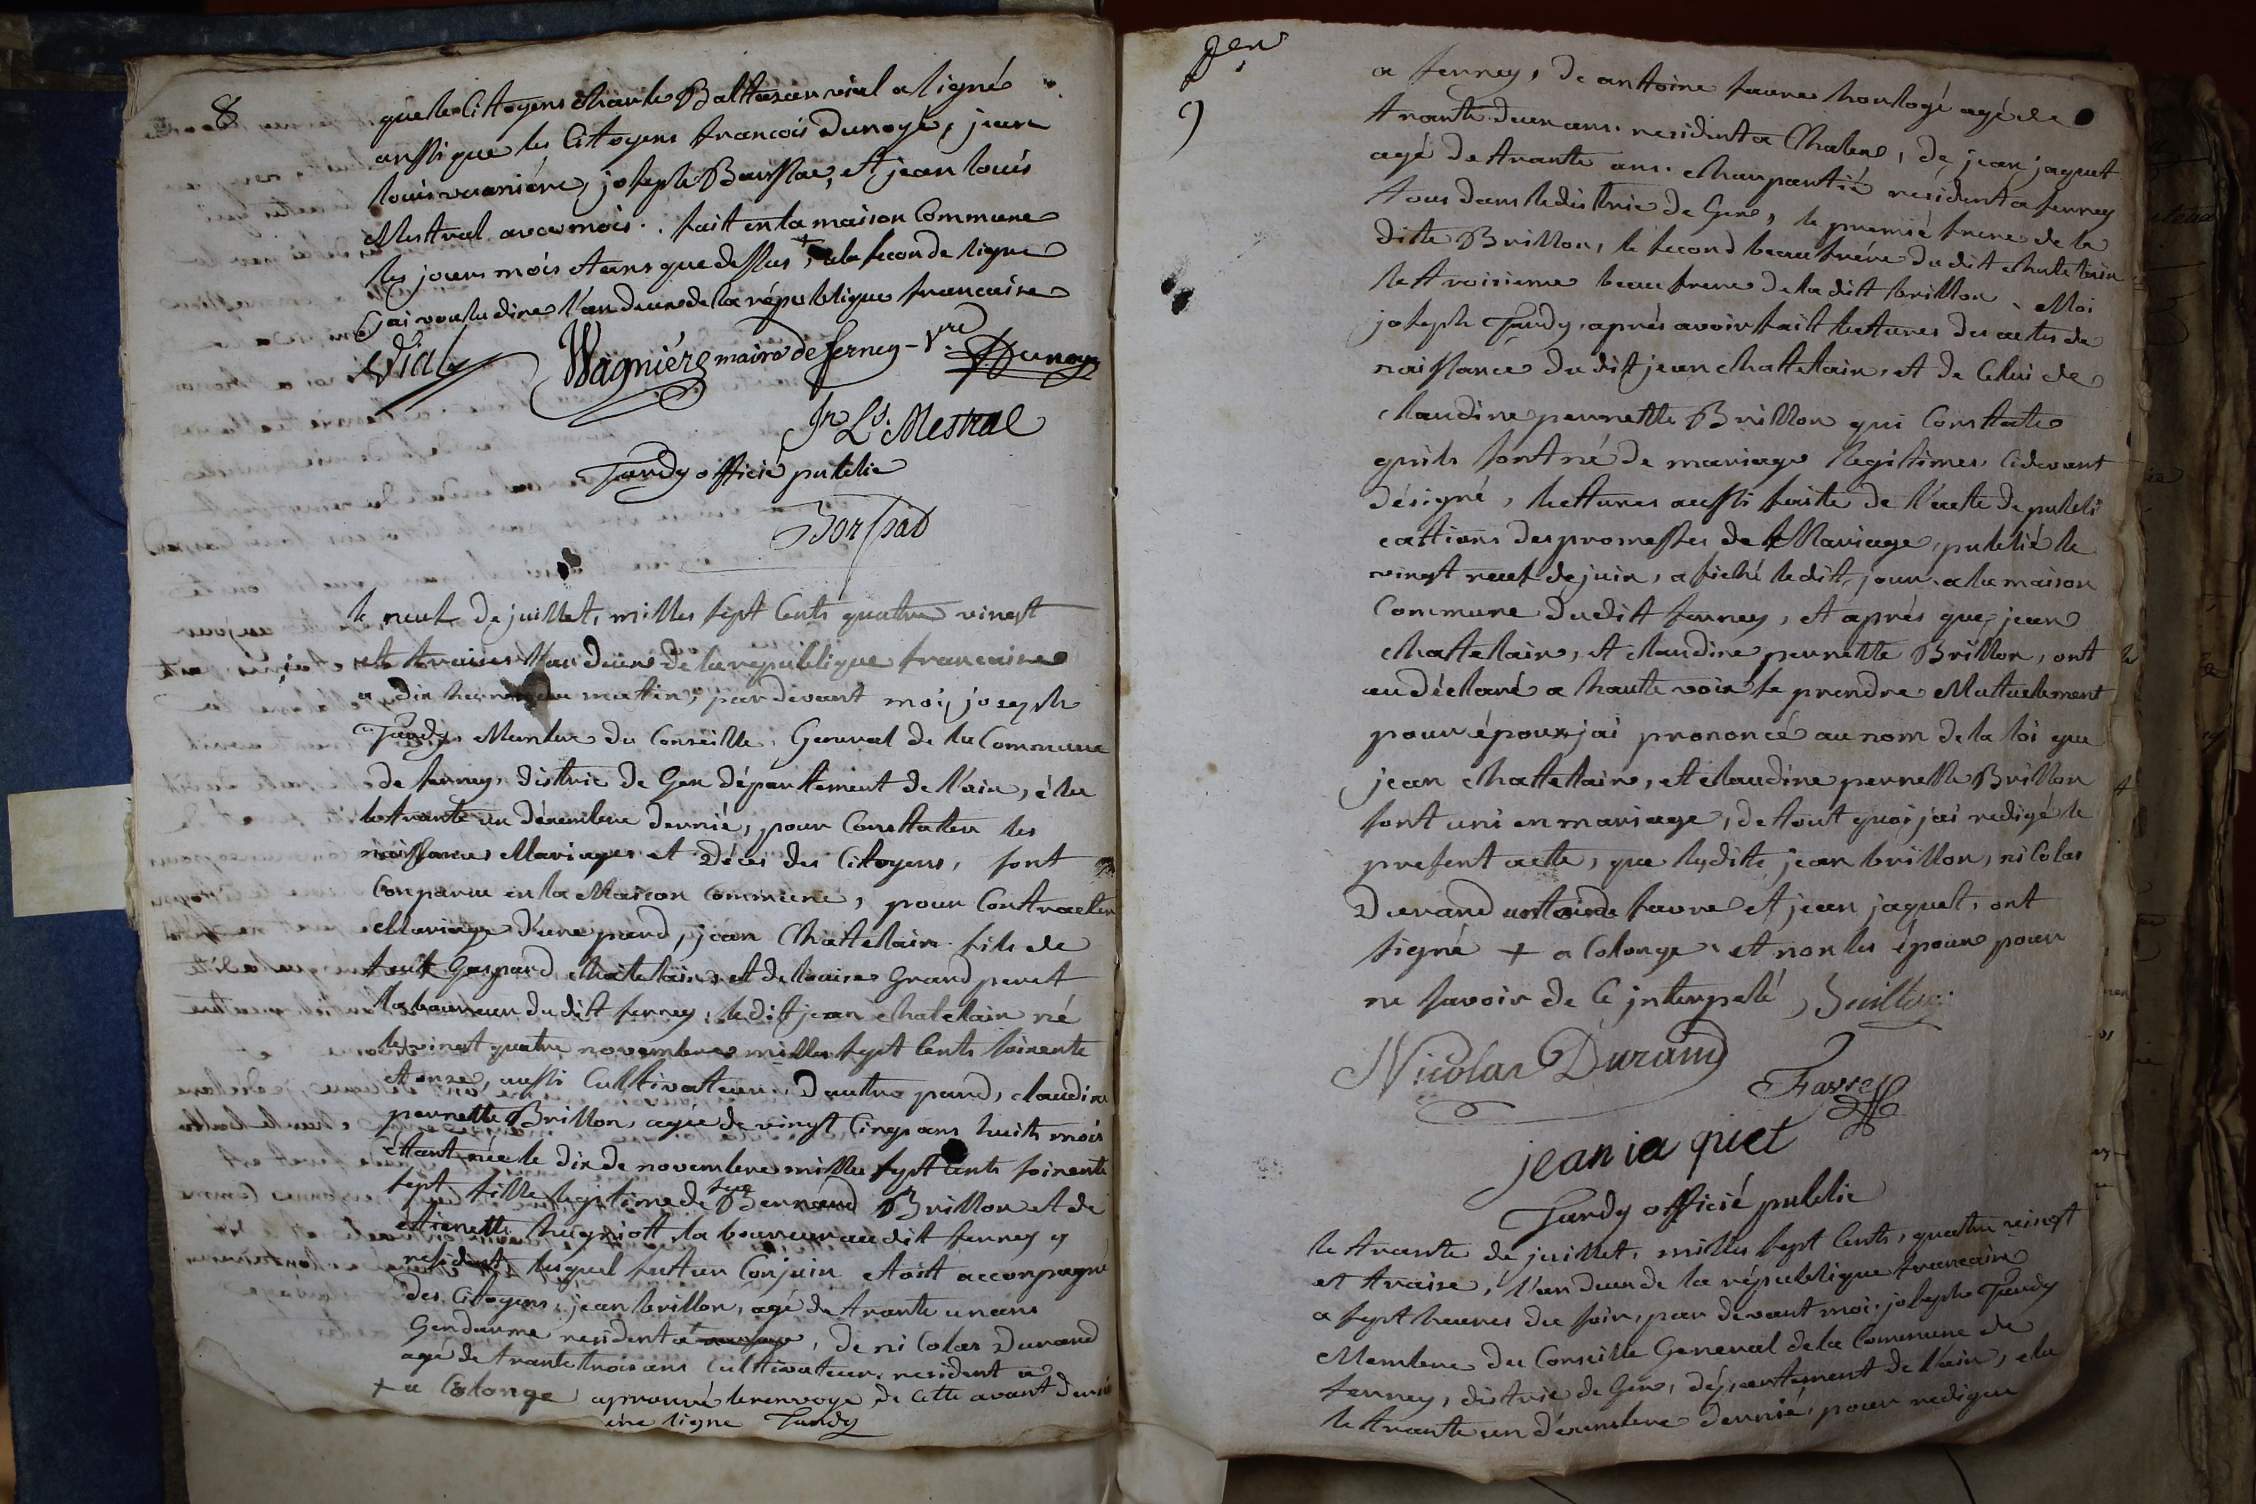 8
que le Citoyens Charle Baltasar vial a signé
aussi que les Citoyens francois Dunoyé, jean
louis vuaniére, joseph Borssac, et jean louis
Mestral avec moi. fait en la maison Commune
les jours mois et ans que dessus, a la seconde ligne
j'ai voulu dire l'an deux de la république francaise
Vial
Wagniére maire de ferney-Vre Dunoyer
Jn Ls. Mestral
Tardy officié publie
Borssat
le neuf de juillet, milles sept Cents quatre vingt
et traises l'an deux de la republique francaise
a dix heures du matin, par devant moi, joseph
Tardy, Membre du Conseille, General de la Commune
de ferney, distric de Gex département de l'ain, élu
le trante un décembre dernié, pour Constater les
naissances Mariages et Déces des Citoyens, sont
Conparue en la Maison Commune, pour Contracter
Mariage d'une pard, jean Chattelain fils de
Gaspard Chatelain, et de louise Grand perret
laboureur dudit ferney, ledit jean Chatelain né
le vingt quatre novembre milles sept Cents soixente
et onse, aussi Cultivateur, Dautre pard, claudine
pernette Brillon, agée de vingt Cinq ans huits mois
étant née le dix de novembre milles sept Cents soixente
sept fille legitime de feu Bernard Brillon et de
etienette hugniott laboureur au dit ferney y
resident, lesquel futur Conjuin etoit acconpagné
des Citoyens, jean brillon, agé de trante un ans
Gendarme resident a, de nicolas Durand
agé de trante trois ans Cultivateur, resident a
+ a Colonge, aprouvé le renvoye de cette avant derniè
ere ligne Tardy
Der
9
a ferney, de antoine favre horlogé agé de
trante deux ans. resident a Chalex, de jean jaquet
agé de trante ans. charpantié resident a ferney
tous dans le distric de Gex, le premié frere de la
dite Brillon, le second beau frére du dit chatelain
le troisieme beau frere de la dite brillon. Moi
joseph Tardy, aprés avoir fait lectures des actes de
naissance du dit jean chattelain, et de Celui de
claudine pernette Brillon qui Constate
quils sont né de mariage legitimes Cidevant
désigné, lectures aussi faite de l'acte de publi
cations des promesses de Mariage, publié le
vingt neuf de juin, afiché le dit jour a la maison
Commune dudit ferney, et aprés que jean
chattelain, et claudine pernette Brillon, ont
eu déclaré a haute voix se prendre Mutuelement
pour époux jai prononcé au nom de la loi que
jean chattelain, et claudine pernette Brillon
sont uni en mariage, de tout quoi jai redigé le
present acte, que lesdits jean brillon, nicolas
Durand antoine favre et jean jaquet, ont
signé + a Colonge. et non les époux pour
ne savoir de Ce jnterpelé Brillion
Nicolas Durand
Favre
jean ia quet
Tardy officié publie
le trante de juillet, milles sept Cents, quatre vingt
et traise, l'an deux de la république francaise
a sept heures du soir, par devant moi, joseph Tardy
Membre du Conseille General de la Commune de
ferney, distric de Gex, département de l'ain, elu
le trante un décembre dernié, pour rediger